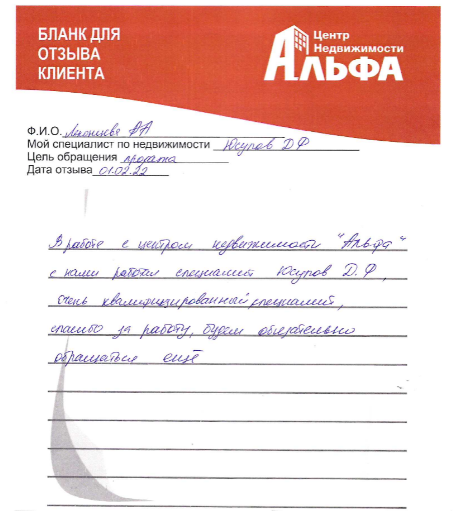 БЛАНК ДЛЯ
ОТЗЫВА
КЛИЕНТА
Центр
Недвижимости
АЛЬФА
Ф.И.О. А А
Мой специалист по недвижимости Юсупов Д Ф
Цель обращения продажа
Дата отзыва 01.02.22
В работе с центром недвижимости "Альфа"
с нами работал специалист Юсупов Д.Ф,
очень квалифицированный специалист,
спасибо за работу, будем обязательно
обращаться ещё